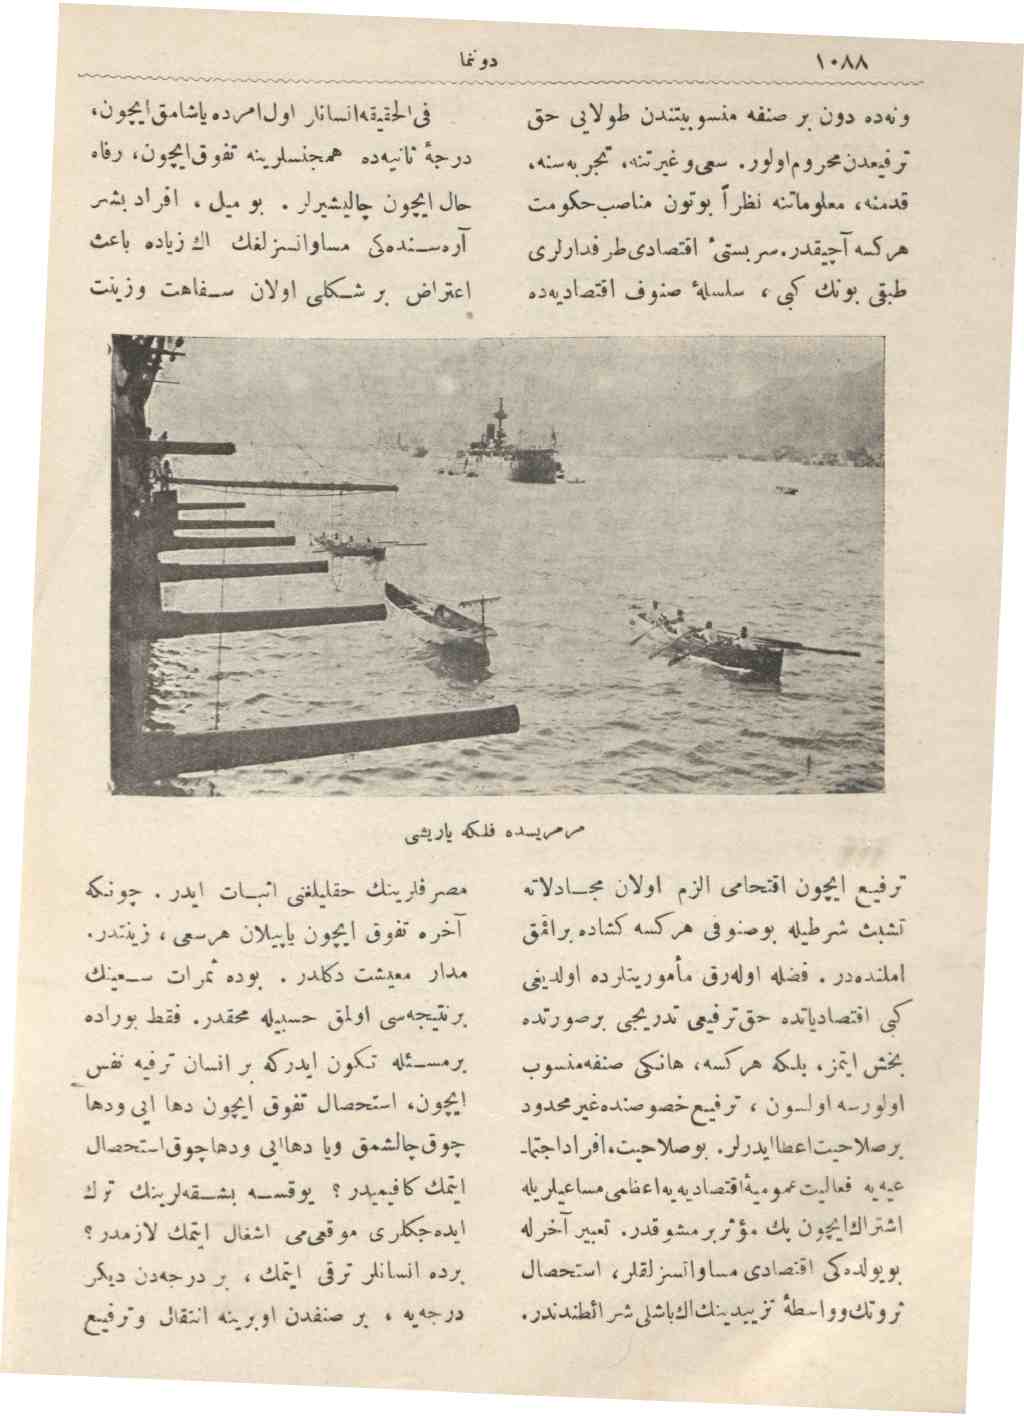 ١٠٨٨
دوننما
ونه‌ده دون بر صنفه منسوبیتندن طولایی حق
ترفیعدن محروم اولور. سعی و غیرتنه، تجربه‌سنه،
قدمنه، معلوماتنه نظراً بوتون مناصب حکومت
هرکسه آچیقدر. سربستیٔ اقتصادی طرفدارلری
طبقی بونك کبی، سلسلهٔ صنوف اقتصادیه‌ده
فی الحقیقه انسانلر اول امرده یاشامق ایچون،
درجهٔ ثانیه‌ده همجنسلرینه تفوق ایچون، رفاه
حال ایچون چالیشیرلر. بو میل، افراد بشر
آره‌سنده‌کی مساواتسزلغك اڭ زیاده باعث
اعتراض بر شکلی اولان سفاهت وزینت
مرمریسده فلکه یاریشی
ترفیع ایچون اقتحامی الزم اولان مجادلاته
تشبث شرطیله بوصنوفی هرکسه کشاده براقمق
املنده‌در. فضله اوله‌رق مأموریتلرده اولدیغی
کبی اقتصادیاتده حق ترفیعی تدریجی برصورتده
بخش ایتمز، بلکه هرکسه، هانکی صنفه منسوب
اولورسه اولسون، ترفیع خصوصنده غیر محدود
برصلاحیت اعطا ایدرلر. بوصلاحیت، افراد اجتماـ
عیه‌یه فعالیت عمومیهٔ اقتصادیه‌یه اعظمی مساعیلریله
اشتراك ایچون پك مؤثر بر مشوقدر. تعبیر آخرله
بویولده‌کی اقتصادی مساواتسزلقلر، استحصال
ثروتك وواسطهٔ تزییدینك اڭ باشلی شرائطندندر.
مصرفلرینك حقلیلغنی اثبات ایدر. چونکه
آخره تفوق ایچون یاپیلان هرسعی، زینتدر.
مدار معیشت دکلدر. بوده ثمرات سعینك
برنتیجه‌سی اولمق حسبیله محقدر. فقط بوراده
برمسئله تکون ایدرکه بر انسان ترفیه نفس
ایچون، استحصال تفوق ایچون دها ایی ودها
چوق چالشمق ویا دها ایی ودها چوق استحصال
ایتمك کافیمیدر؟ یوقسه بشقه‌لرینك ترك
ایده‌جکلری موقعی‌می اشغال ایتمك لازمدر؟
برده انسانلر ترقی ایتمك، بر درجه‌دن دیکر
درجه‌یه، بر صنفدن اوبرینه انتقال وترفیع